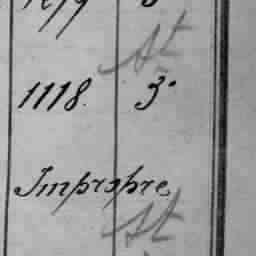 St
1118. 3°
Impropre
St